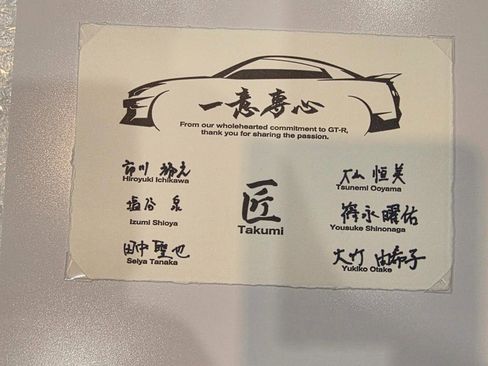 一意専心
From our wholehearted commitment to GT-R,
thank you for sharing the passion.
市川
Hiroyuki Ichikawa
塩谷 泉
Izumi Shioya
田中 聖也
Seiya Tanaka
匠
Takumi
大山 恒美
Tsunemi Ooyama
篠永 曜佑
Yousuke Shinonaga
大竹 由希子
Yukiko Otake